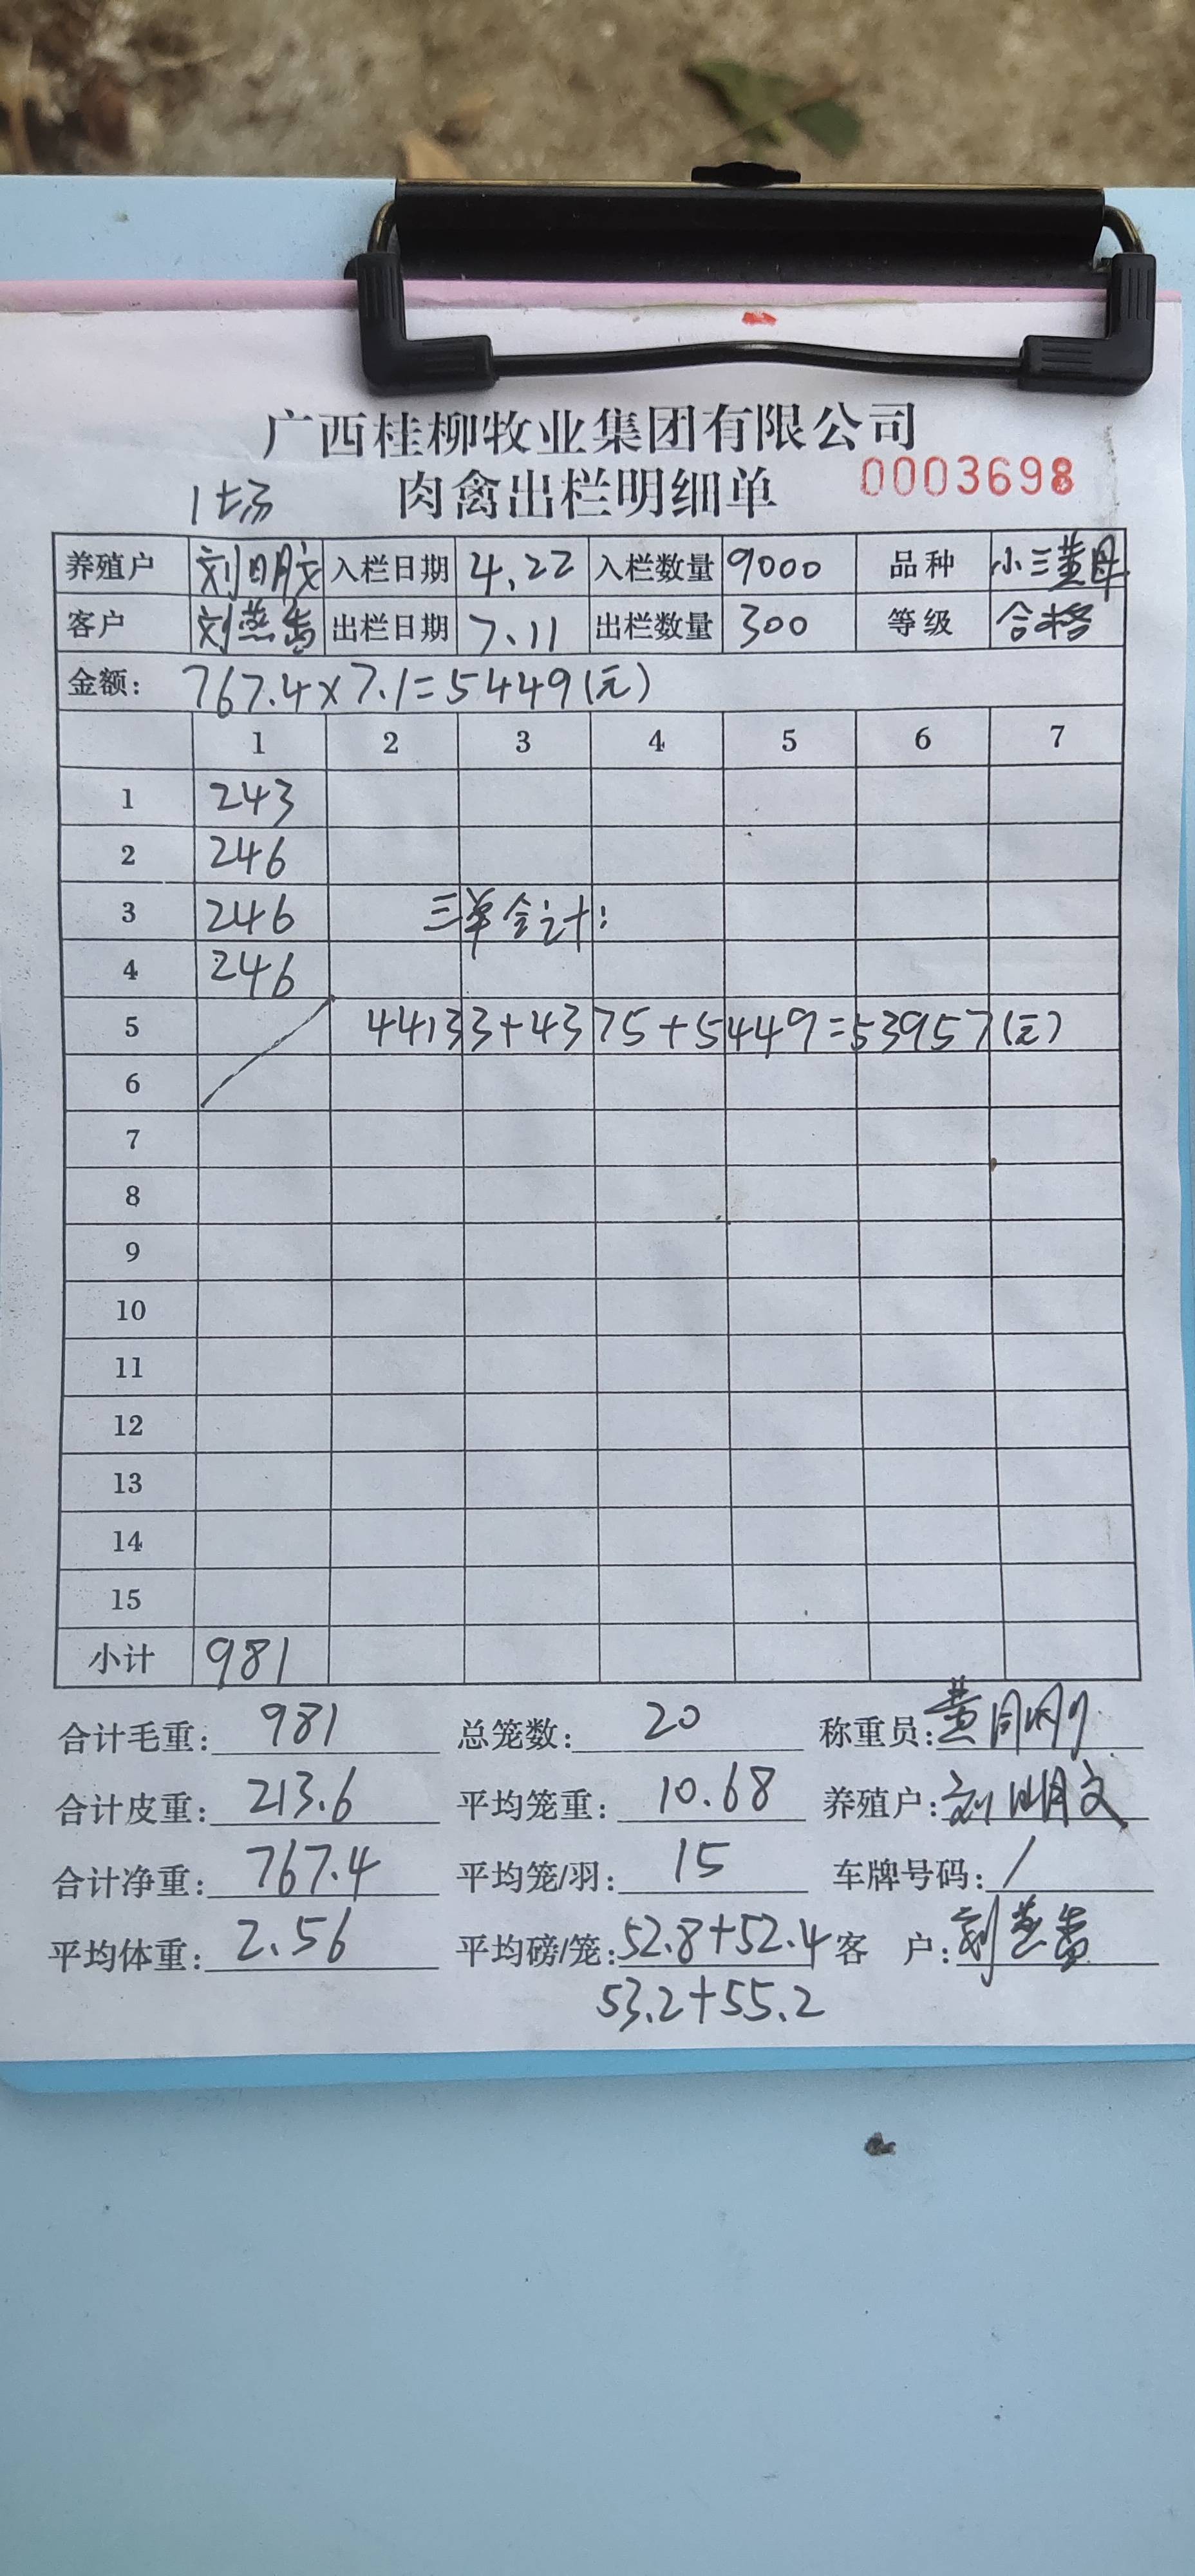 广西桂柳牧业集团有限公司
1场 肉禽出栏明细单 0003698
养殖户 刘明文 入栏日期 4.22 入栏数量 9000 品种 小三黄母
客户 刘燕 出栏日期 7.11 出栏数量 300 等级 合格
金额: 767.4×7.1=5449(元)
1 2 3 4 5 6 7
1 243
2 246
3 246 三单合计:
4 246
5 44133+4375+5449=53957(元)
6
7
8
9
10
11
12
13
14
15
小计 981
合计毛重: 981 总笼数: 20 称重员: 黄
合计皮重: 213.6 平均笼重: 10.68 养殖户: 刘明文
合计净重: 767.4 平均笼/羽: 15 车牌号码: /
平均体重: 2.56 平均磅/笼: 52.8+52.4 客 户: 刘燕
53.2+55.2